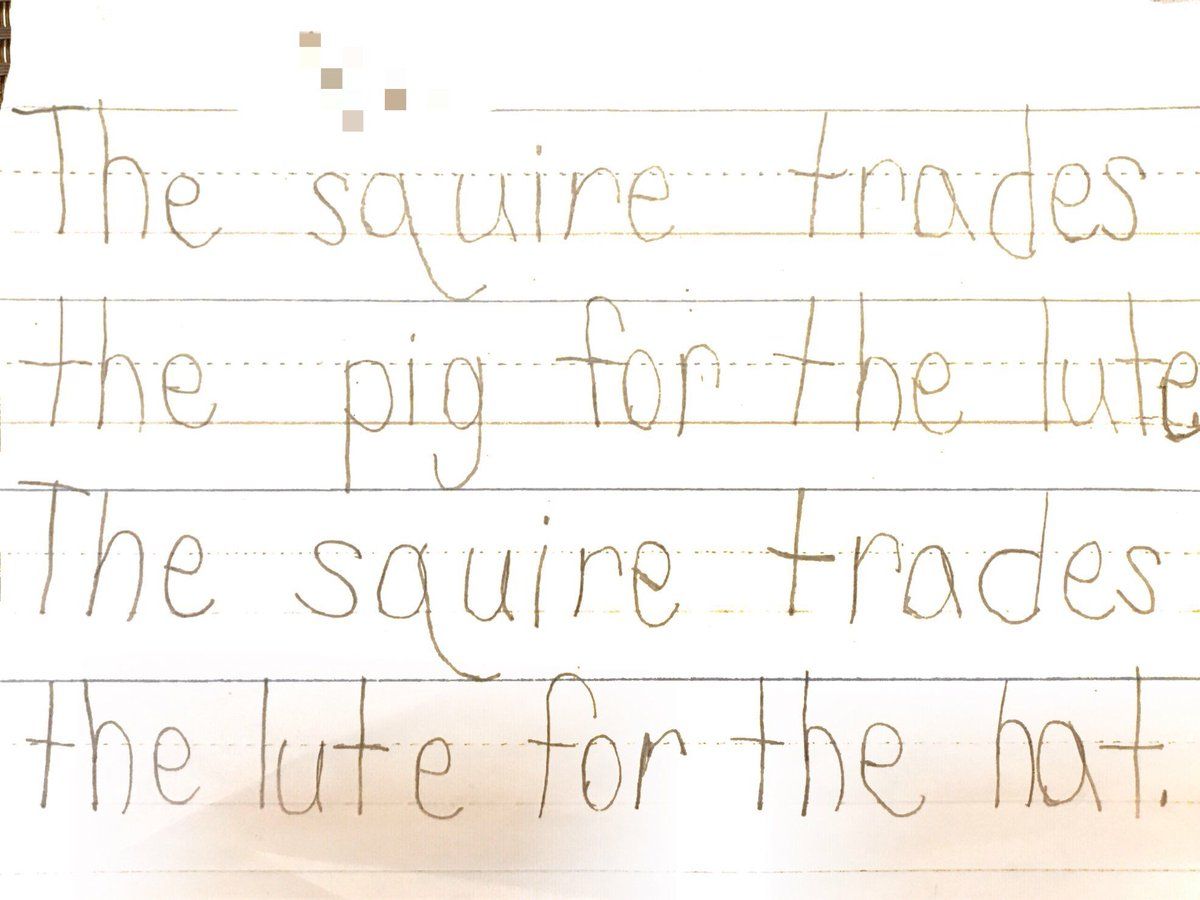 The squire trades
the pig for the lute
The squire trades
the lute for the hat.